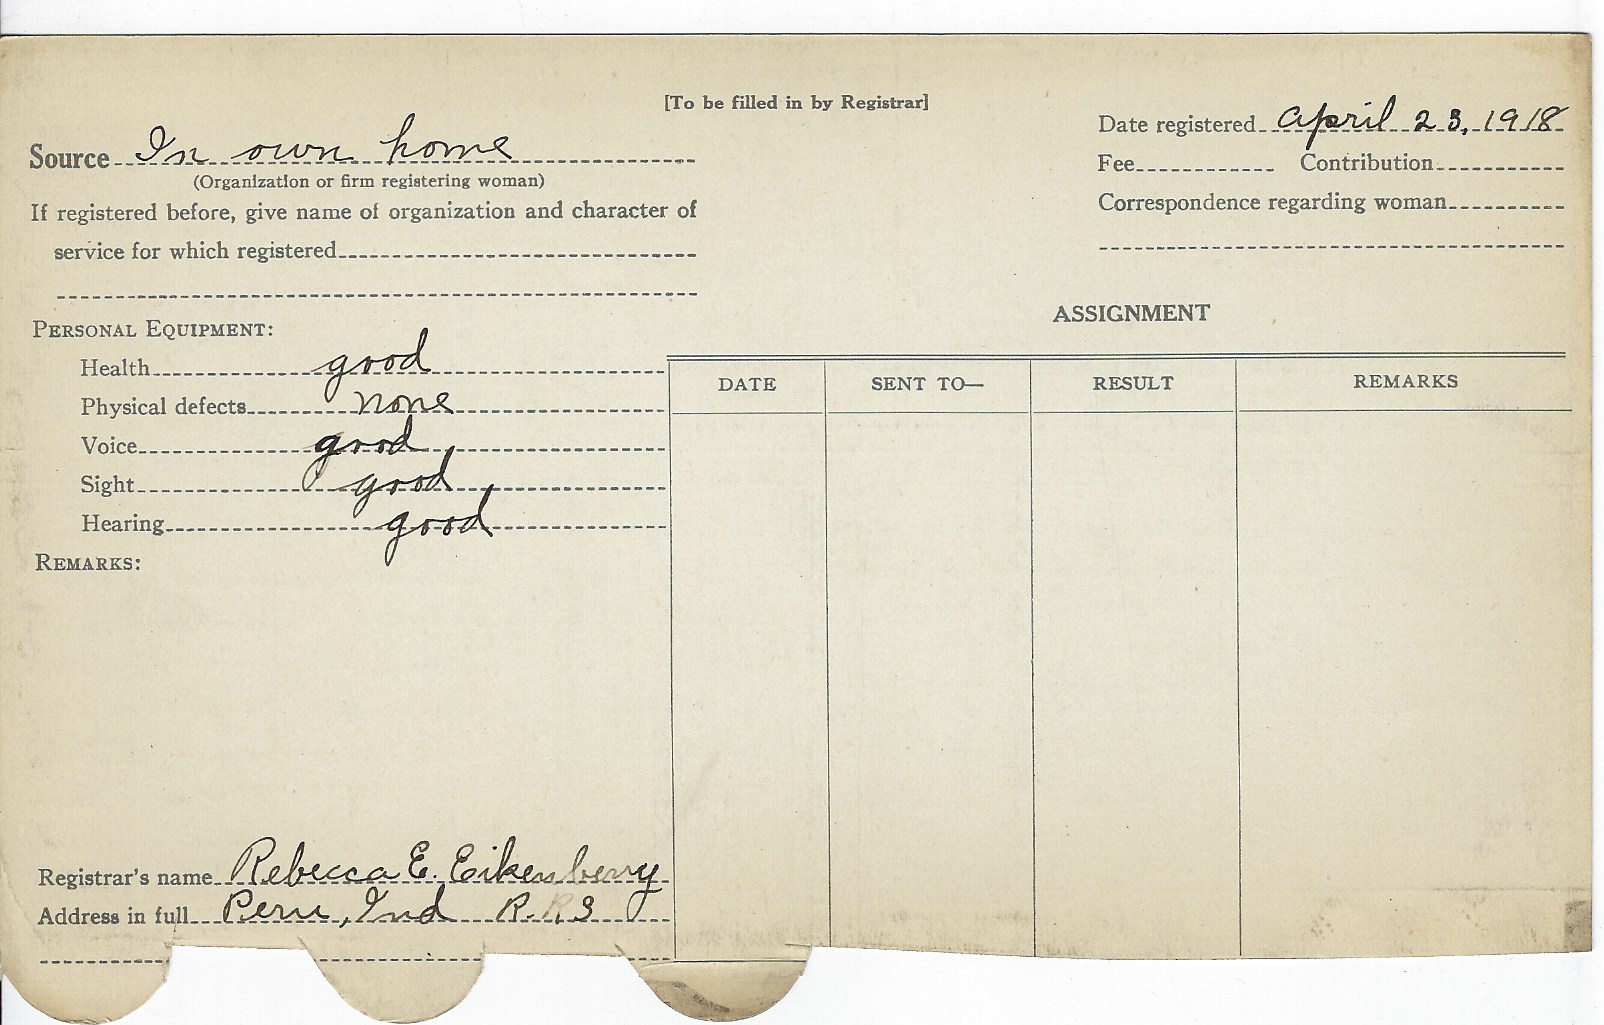 [To be filled in by Registrar]
Source In own home
(Organization or firm registering woman)
If registered before, give name of organization and character of
service for which registered
Date registered April 23, 1918
Fee Contribution
Correspondence regarding woman
PERSONAL EQUIPMENT:
Health good
Physical defects none
Voice good
Sight good
Hearing good
REMARKS:
ASSIGNMENT
DATE SENT TO— RESULT REMARKS
Registrar's name Rebecca E. Eikenberry
Address in full Peru, Ind R.R 3